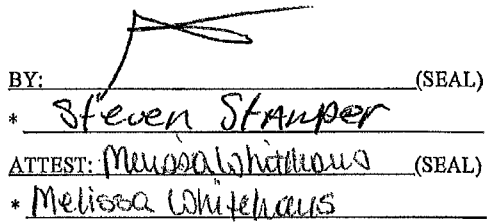 BY: (SEAL)
* Steven Stamper
ATTEST: Melissa Whitehaus (SEAL)
* Melissa Whitehaus